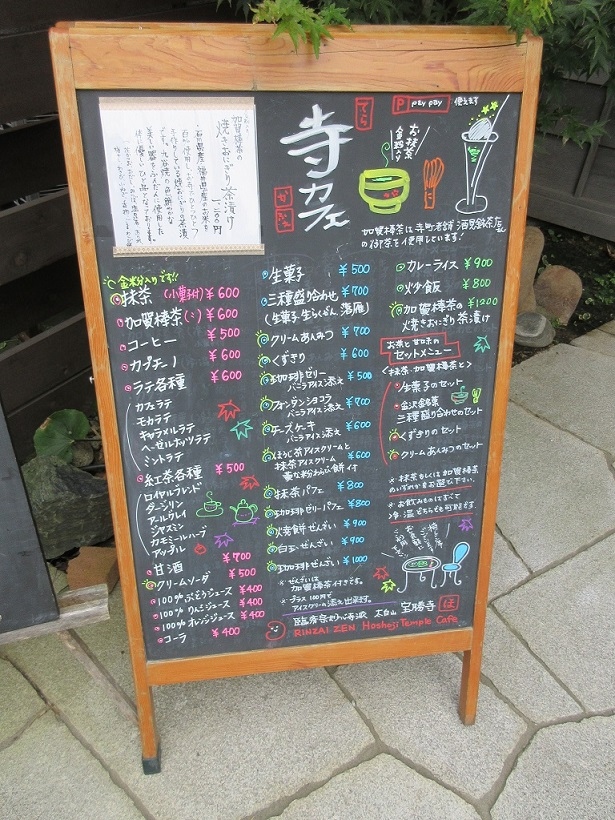 加賀棒茶の
焼きおにぎり茶漬け
寺カフェ
てら
かふぇ
P PayPay 使えます
お抹茶
加賀棒茶は寺町老舗
の御茶を使用しています!
金粉入りです!!
抹茶(小菓子付) ¥600
加賀棒茶(〃) ¥600
コーヒー ¥500
カプチーノ ¥600
ラテ各種 ¥600
カフェラテ
モカラテ
キャラメルラテ
ヘーゼルナッツラテ
ミントラテ
紅茶各種 ¥500
ロイヤルブレンド
ダージリン
アールグレイ
ジャスミン
カモミールハーブ
アップル
甘酒 ¥700
クリームソーダ ¥500
100%ぶどうジュース ¥400
100%りんごジュース ¥400
100%オレンジジュース ¥400
コーラ ¥400
生菓子 ¥500
三種盛り合わせ ¥700
(生菓子・生らくがん・落雁)
クリームあんみつ ¥700
くずきり ¥600
珈琲ゼリー ¥500
バニラアイス添え
フォンダンショコラ ¥700
バニラアイス添え
チーズケーキ ¥600
バニラアイス添え
ほうじ茶アイスクリームと
抹茶アイスクリーム ¥600
わらび餅付
抹茶パフェ ¥800
珈琲ゼリーパフェ ¥800
焼餅ぜんざい ¥900
白玉ぜんざい ¥900
珈琲ぜんざい ¥1000
※ぜんざいは
加賀棒茶付きです。
※プラス100円で
アイスクリーム添え出来ます。
カレーライス ¥900
炒飯 ¥800
加賀棒茶の ¥1200
焼きおにぎり茶漬け
お茶と甘味の
セットメニュー
<抹茶・加賀棒茶と>
生菓子のセット
金沢銘菓
三種盛り合わせのセット
くずきりのセット
クリームあんみつのセット
※抹茶もしくは加賀棒茶
のいずれかをお選び下さい。
※お飲みものはすべて
冷・温どちらでも可能です。
臨済宗妙心寺派 太白山 宝勝寺 ほ
RINZAI ZEN Hoshoji Temple Cafe